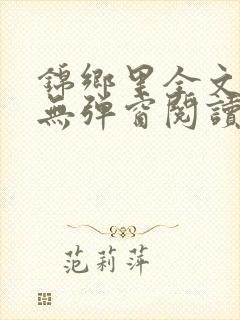 錦鄉里全文
無彈窗閱讀
范莉萍